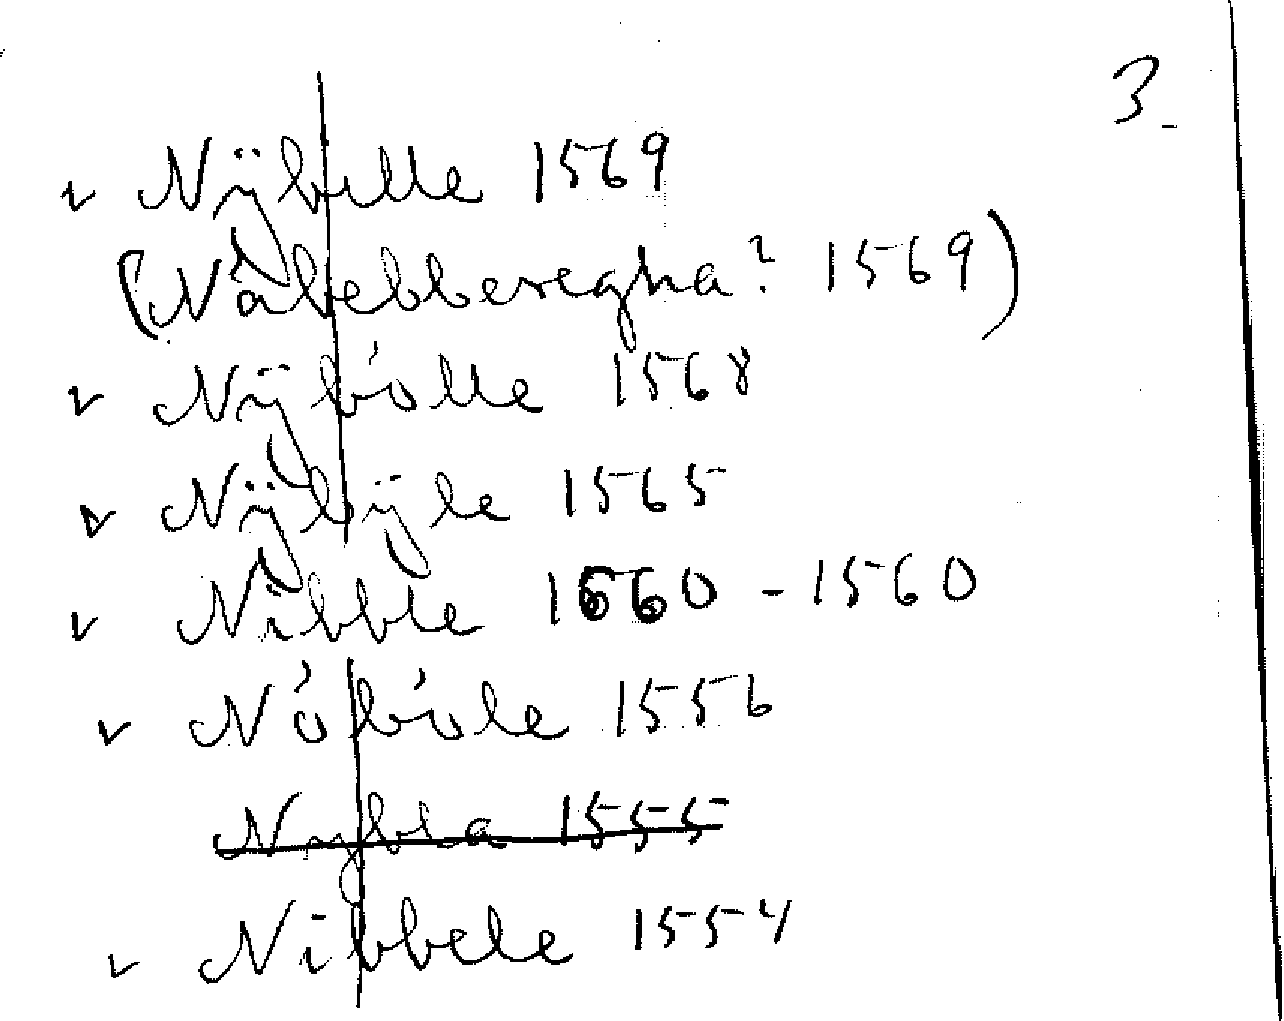 3.
v Nÿbille 1569
(Nåbebberegha? 1569)
v Nÿbólle 1568
v Nÿbÿle 1565
v Nibble 1660 - 1560
v Nóbóle 1556
Nybla 1555
v Nibbele 1554